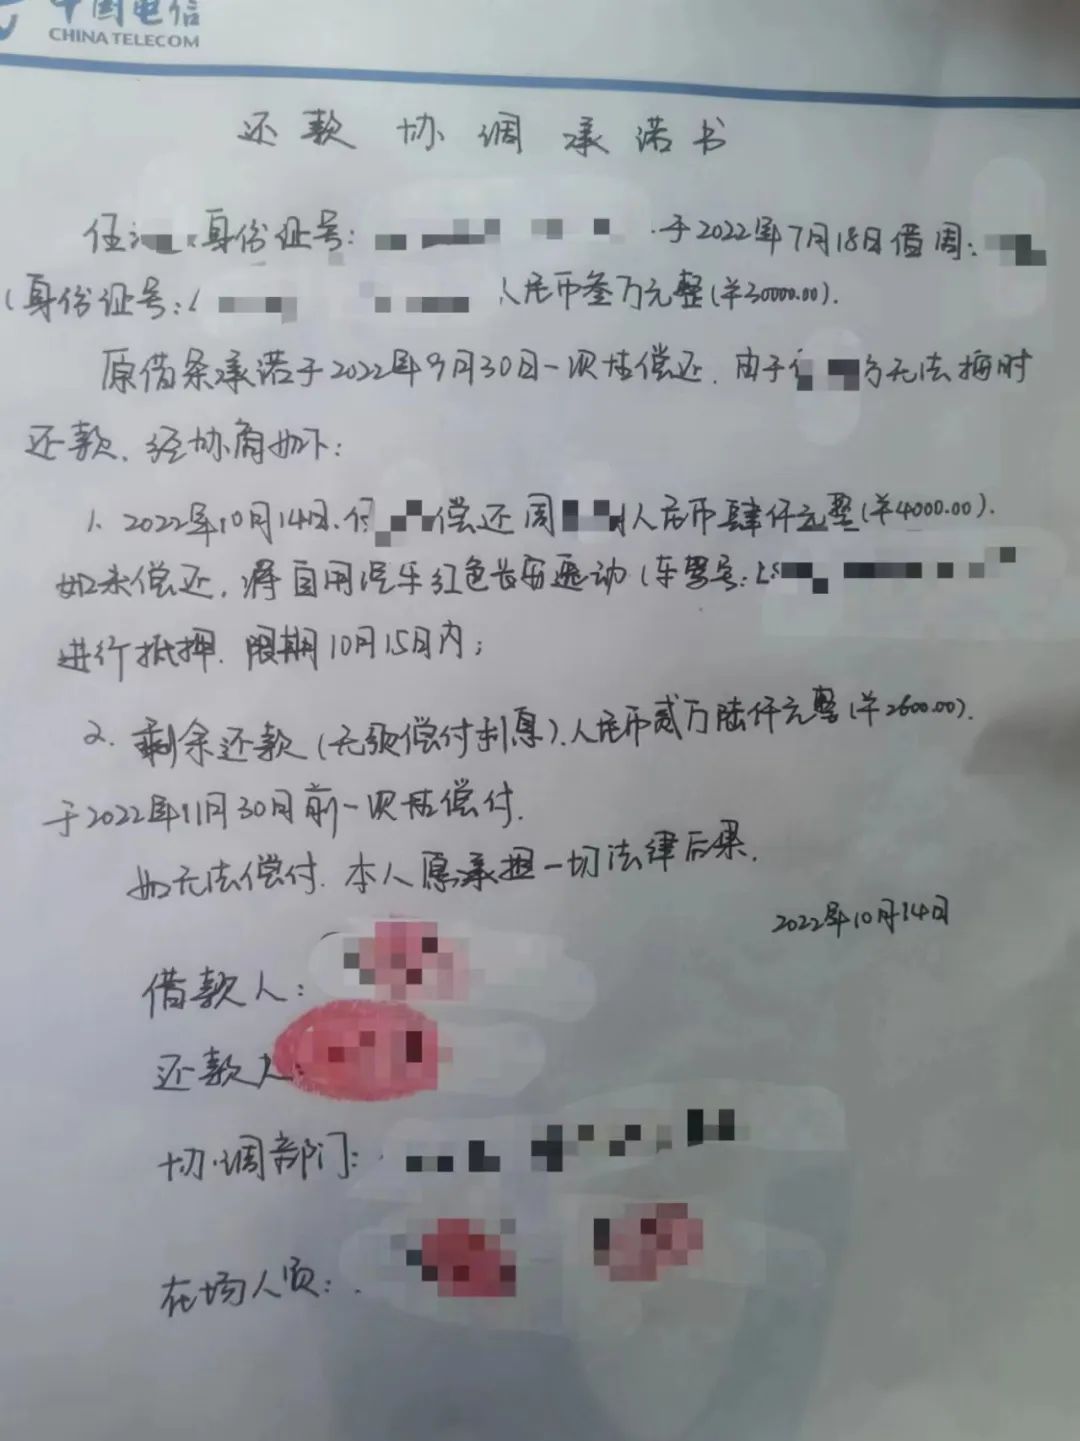 中国电信
CHINA TELECOM
还款协调承诺书
任 身份证号: 于2022年7月18日借周
(身份证号: 人民币叁万元整(¥30000.00).
原借条承诺于2022年9月30日一次性偿还.由于 无法按时
还款、经协商如下:
1、2022年10月14日、 偿还周 人民币肆仟元整(¥4000.00).
如未偿还,将自用汽车红色长安逸动(车 号:
进行抵押.限期10月15日内;
2.剩余还款(无须偿付利息)、人民币贰万陆仟元整(¥2600.00).
于2022年11月30日前一次性偿付.
如无法偿付.本人愿承担一切法律后果.
2022年10月14日
借款人:
还款人:
协调部门:
在场人员: